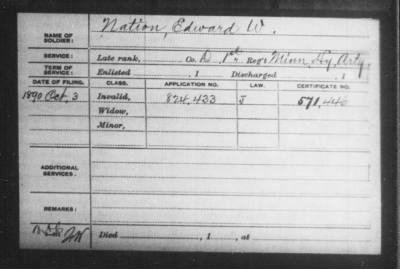 NAME OF SOLDIER: Nation, Edward W.
SERVICE: Late rank, Co. D 1st Reg't Minn Hy. Arty
TERM OF SERVICE: Enlisted , 1 Discharged , 1
DATE OF FILING. CLASS. APPLICATION NO. LAW. CERTIFICATE NO.
1890 Oct, 3 Invalid, 824,433 J 571,446
Widow,
Minor,
ADDITIONAL SERVICES.
REMARKS:
Died , 1 , at